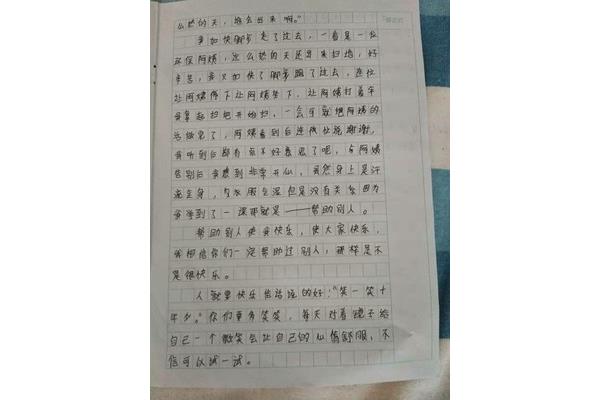 么热的天，谁会出来啊。"
我加快脚步走了过去，一看是一位
环保阿姨，这么热的天还要来扫地，好
辛苦，我又加快了脚步跑了过去，连忙
让阿姨停下让阿姨坐下，让阿姨打着伞
我拿起扫把开始扫，一会可就把阿姨的
活做完了，阿姨看到后连忙出说谢谢，
我听到后都有点不好意思了呢，与阿姨
告别后我感到非常开心，虽然身上是汗
流全身，与衣服全湿但是没有关系因为
我学到了一课那就是——帮助别人。
帮助别人使我快乐，使大家快乐，
我相信你们一定帮助过别人，那样是不
是很快乐。
人就要快乐俗话说的好："笑一笑十
年少。"你们要多笑笑，每天对着镜子给
自己一个微笑会让自己的心情舒服，不
信可以试一试。